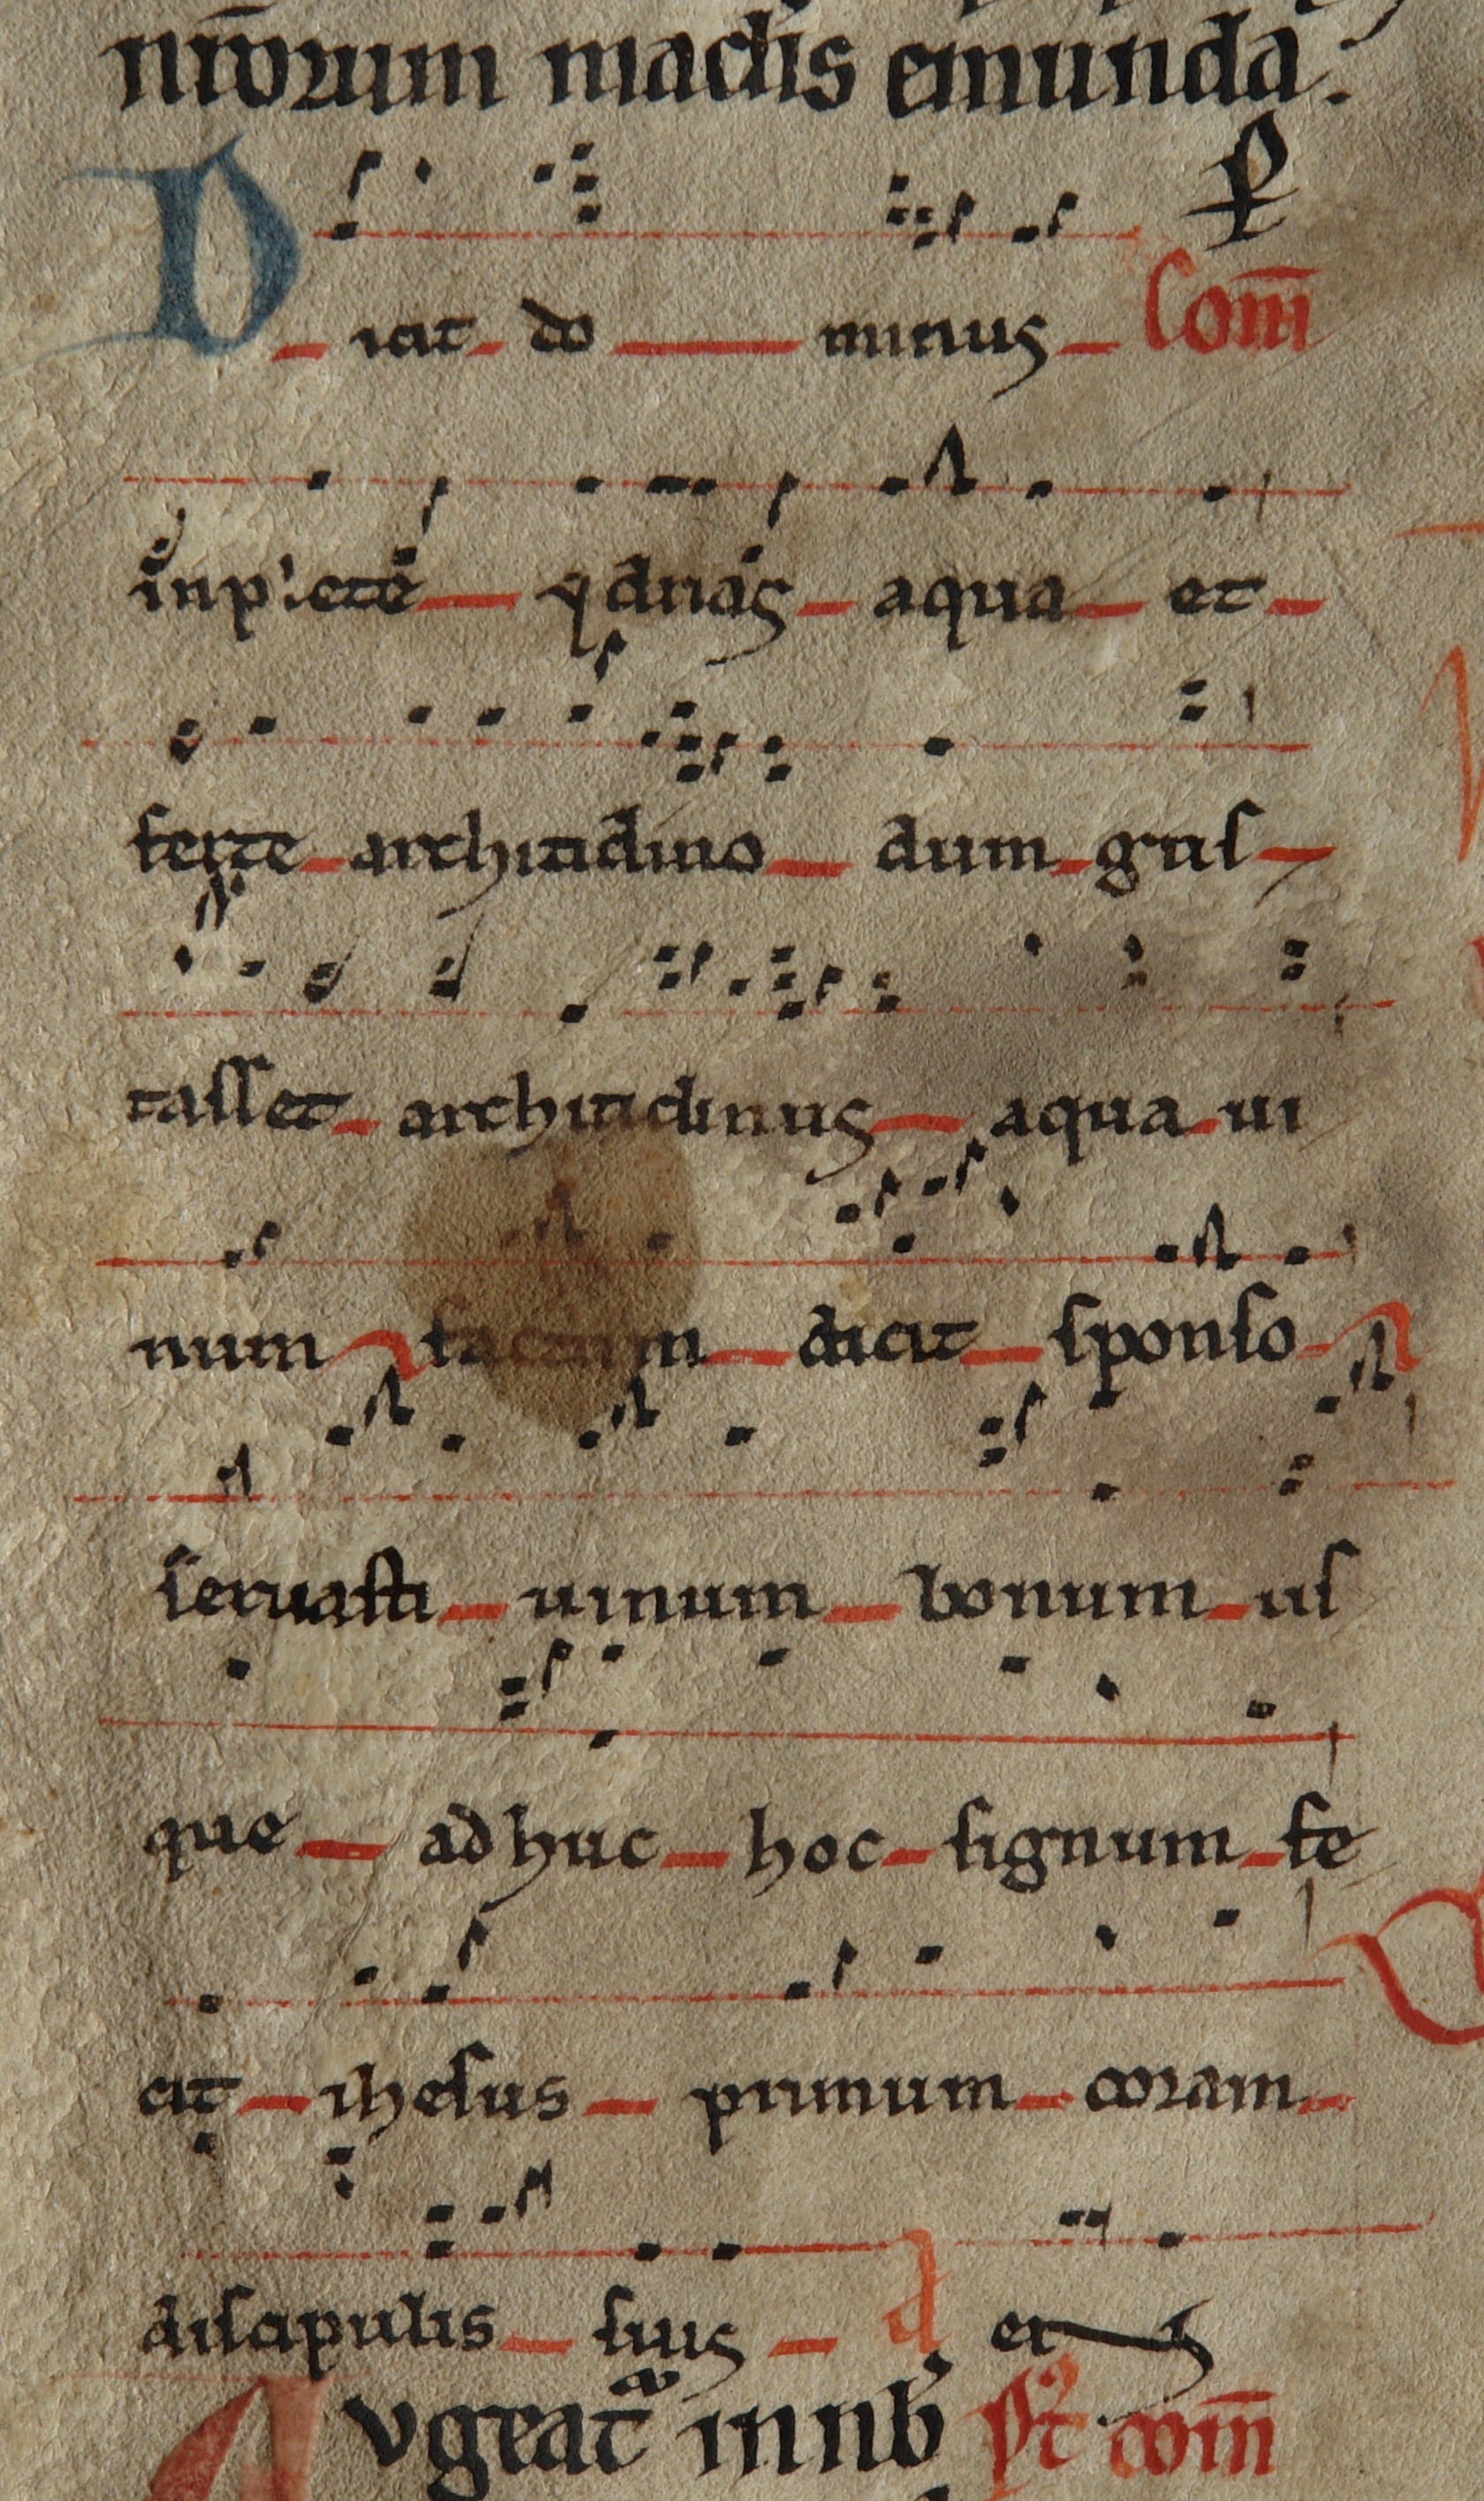 nr̄orum maclis emunda.
Dicit do minus Com̄
inplete ydrias aqua et
ferte architriclino dum gus
tasset architriclinus aqua ui
num factum dicit sponso
seruasti uinum bonum us
que adhuc hoc signum fe
cit ihesus primum coram
discipulis suis ei
Augeat̄ in nob̄ com̄